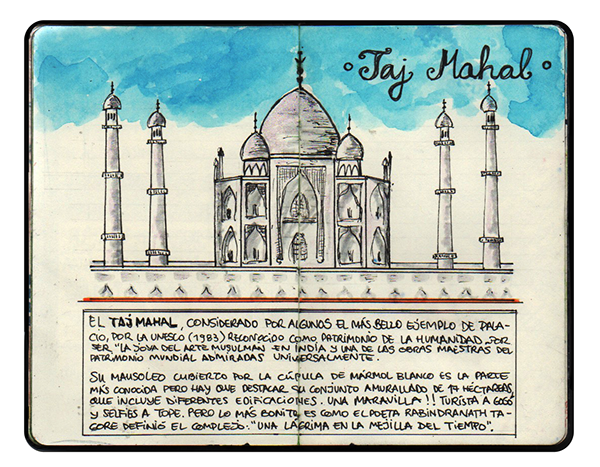 Taj Mahal
EL TAJ MAHAL, CONSIDERADO POR ALGUNOS EL MÁS BELLO EJEMPLO DE PALA-
CIO, POR LA UNESCO (1983) RECONOCIDO COMO PATRIMONIO DE LA HUMANIDAD POR
SER "LA JOYA DEL ARTE MUSULMÁN EN INDIA Y UNA DE LAS OBRAS MAESTRAS DEL
PATRIMONIO MUNDIAL ADMIRADAS UNIVERSALMENTE.
SU MAUSOLEO CUBIERTO POR LA CÚPULA DE MÁRMOL BLANCO ES LA PARTE
MÁS CONOCIDA PERO HAY QUE DESTACAR SU CONJUNTO AMURALLADO DE 17 HECTAREAS,
QUE INCLUYE DIFERENTES EDIFICACIONES. UNA MARAVILLA!! TURISTA A GOGÓ
Y SELFIES A TOPE. PERO LO MAS BONITO ES COMO EL POETA RABINDRANATH TA-
GORE DEFINIÓ EL COMPLEJO: "UNA LÁGRIMA EN LA MEJILLA DEL TIEMPO".